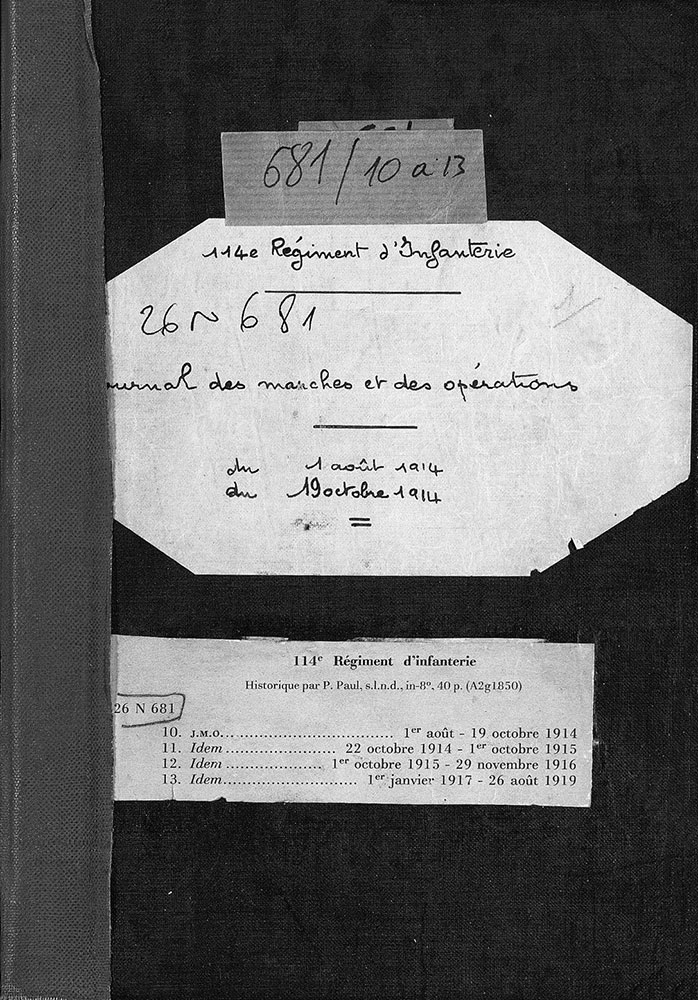 681/10 à 13
114e Régiment d'Infanterie
26 N 681
1
urnal des marches et des opérations
du 1 août 1914
du 19 octobre 1914
114e Régiment d'infanterie
Historique par P. Paul, s.l.n.d., in-8º, 40 p. (A2g1850)
26 N 681
10. J.M.O. .................................. 1er août - 19 octobre 1914
11. Idem ...................... 22 octobre 1914 - 1er octobre 1915
12. Idem ................... 1er octobre 1915 - 29 novembre 1916
13. Idem ........................... 1er janvier 1917 - 26 août 1919